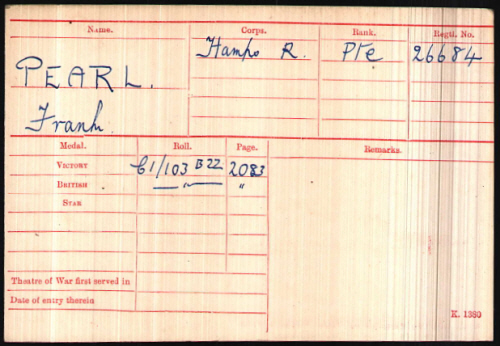 Name. Corps. Rank. Regtl. No.
Hamps R. Pte 26684
PEARL.
Frank.
Medal. Roll. Page. Remarks.
VICTORY C1/103 B22 2083
BRITISH — " — "
STAR
Theatre of War first served in
Date of entry therein
K. 1380